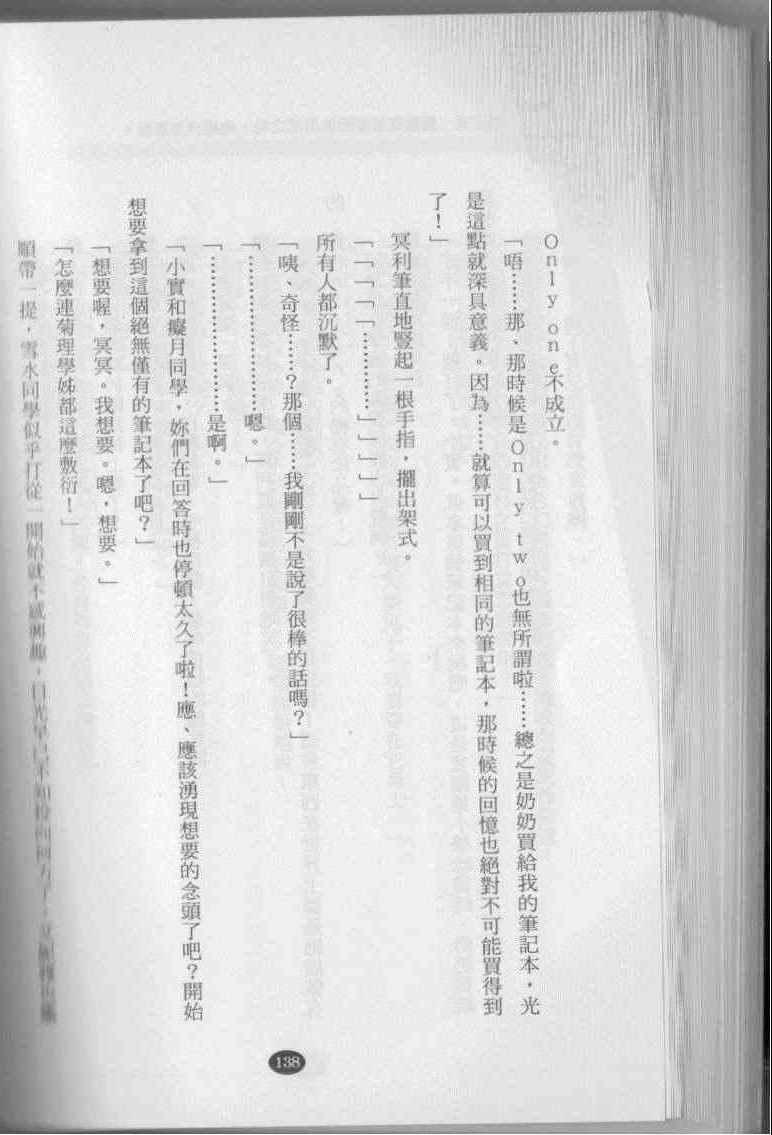 Only one不成立。
「唔……那、那時候是Only two也無所謂啦……總之是奶奶買給我的筆記本，光
是這點就深具意義。因為……就算可以買到相同的筆記本，那時候的回憶也絕對不可能買得到
了！」
冥利筆直地豎起一根手指，擺出架式。
「「「「「…………」」」」」
所有人都沉默了。
「咦、奇怪……？那個……我剛剛不是說了很棒的話嗎？」
「……………………嗯。」
「……………………是啊。」
「小實和癡月同學，妳們在回答時也停頓太久了啦！應、應該湧現想要的念頭了吧？開始
想要拿到這個絕無僅有的筆記本了吧？」
「想要喔，冥冥。我想要。嗯，想要。」
「怎麼連菊理學姊都這麼敷衍！」
順帶一提，雪水同學似乎打從一開始就不感興趣，目光早已不知投向何方了。
138